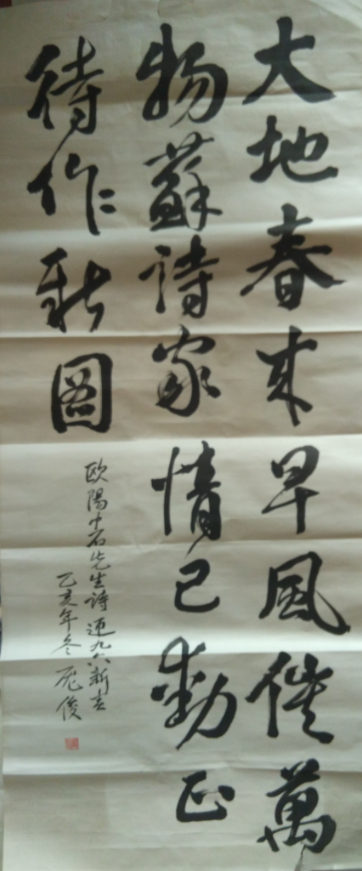 大地春来早風催萬
物蘇詩家情已動正
待作新圖
欧陽中石先生詩迎九六新春
乙亥年冬 俊